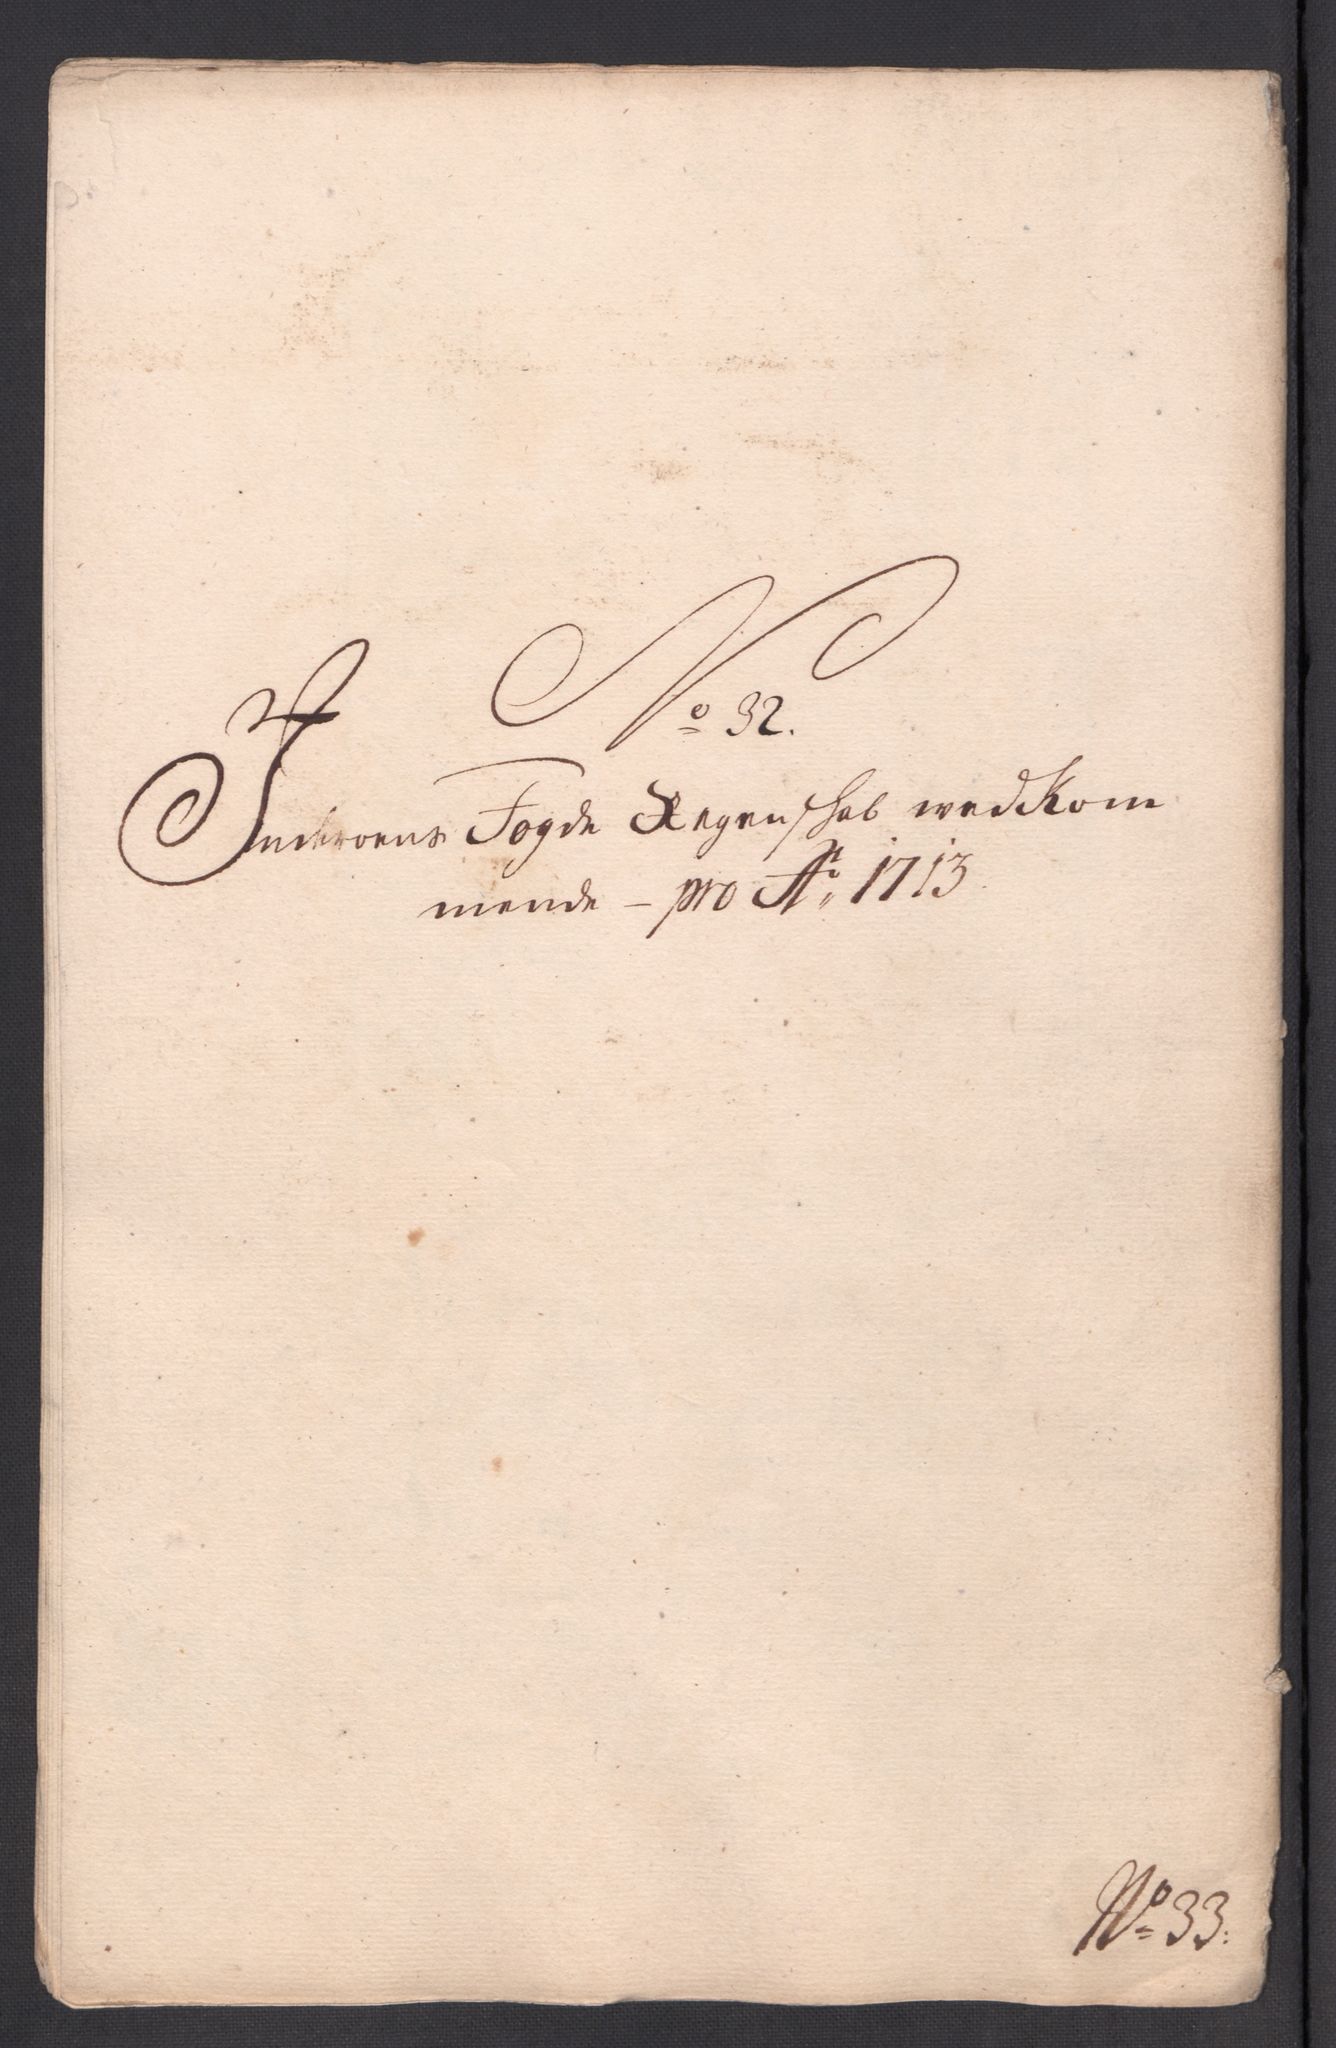 No 32.
Inderoens Fogde Regenschab wedkom
mende - pro Ao. 1713
No 33.